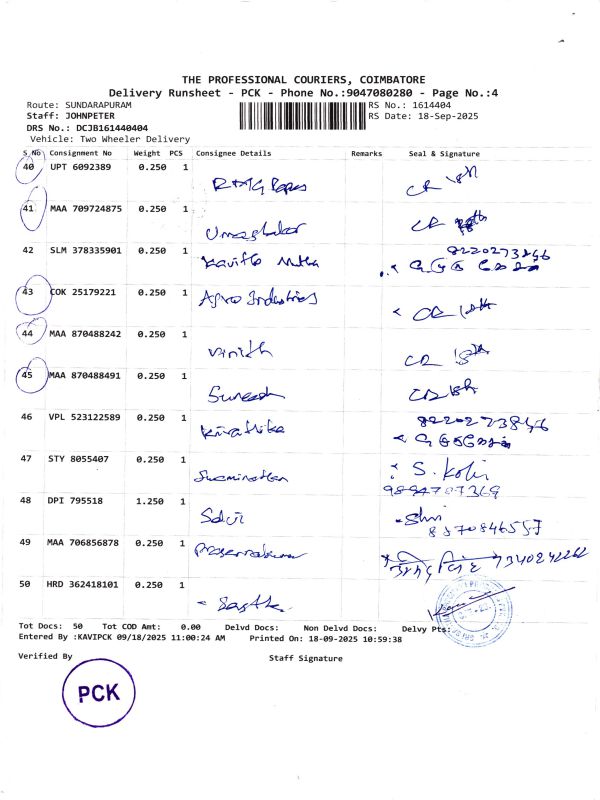 THE PROFESSIONAL COURIERS, COIMBATORE
Delivery Runsheet - PCK - Phone No.:9047080280 - Page No.:4
Route: SUNDARAPURAM
RS No.: 1614404
Staff: JOHNPETER
RS Date: 18-Sep-2025
DRS No.: DCJB161440404
Vehicle: Two Wheeler Delivery
S.No Consignment No Weight PCS Consignee Details Remarks Seal & Signature
40 UPT 6092389 0.250 1
CR 18th
41 MAA 709724875 0.250 1
CR
42 SLM 378335901 0.250 1 8220273846
Kavitha
43 COK 25179221 0.250 1 Agro Industries
CR 18th
44 MAA 870488242 0.250 1
Vinith CR 18th
45 MAA 870488491 0.250 1
Suresh CR 18th
46 VPL 523122589 0.250 1 8220273846
Kirathika
47 STY 8055407 0.250 1
S.
9894707369
48 DPI 795518 1.250 1
8370846557
49 MAA 706856878 0.250 1
7340242262
50 HRD 362418101 0.250 1
Tot Docs: 50 Tot COD Amt: 0.00 Delvd Docs: Non Delvd Docs: Delvy Pts:
Entered By :KAVIPCK 09/18/2025 11:00:24 AM Printed On: 18-09-2025 10:59:38
Verified By Staff Signature
PCK